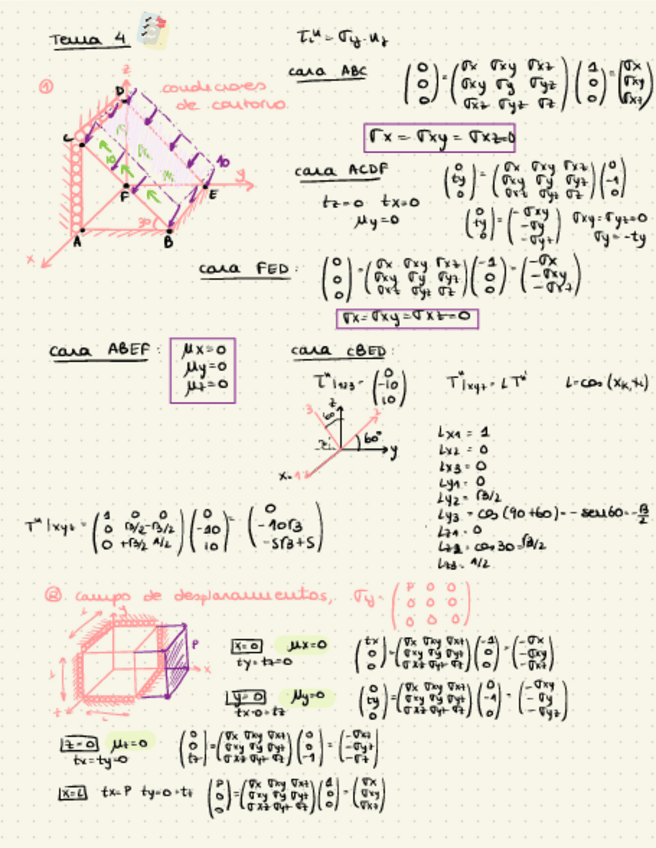 Tema 4
τiᵘ = σij · uj
① condiciones de contorno.
z
D
C
10
10
F
E
y
30
A
B
x
cara ABC
(0 0 0) = (σx σxy σxz; σxy σy σyz; σxz σyz σz) (1 0 0) = (σx σxy σxz)
σx = σxy = σxz = 0
cara ACDF
tz=0 tx=0
μy=0
(0 ty 0) = (σx σxy σxz; σxy σy σyz; σxz σyz σz) (0 -1 0)
(0 ty 0) = (-σxy -σy -σyz) σxy = σyz = 0
σy = -ty
cara FED:
(0 0 0) = (σx σxy σxz; σxy σy σyz; σxz σyz σz) (-1 0 0) = (-σx -σxy -σxz)
σx = σxy = σxz = 0
cara ABEF:
μx=0
μy=0
μz=0
cara CBED:
Tᵘ|123 = (0 -10 10)
Tᵘ|xyz = L Tᵘ'
L = cos (xk, xi)
3
z
60
2
60°
y
x=1
Lx1 = 1
Lx2 = 0
Lx3 = 0
Ly1 = 0
Ly2 = √3/2
Ly3 = cos (90+60) = - sen60 = -√3/2
Lz1 = 0
Lz2 = cos 30 = √3/2
Lz3 = 1/2
Tᵘ|xyz = (1 0 0; 0 √3/2 -√3/2; 0 +√3/2 1/2) (0 -10 10) = (0 -10√3 -5√3+5)
② campo de desplazamientos, σij = (P 0 0; 0 0 0; 0 0 0)
L
y
P
L
x
z
L
x=0 μx=0
ty=tz=0
(tx 0 0) = (σx σxy σxz; σxy σy σyz; σxz σyz σz) (-1 0 0) = (-σx -σxy -σxz)
y=0 μy=0
tx=0=tz
(0 ty 0) = (σx σxy σxz; σxy σy σyz; σxz σyz σz) (0 -1 0) = (-σxy -σy -σyz)
z=0 μz=0
tx=ty=0
(0 0 tz) = (σx σxy σxz; σxy σy σyz; σxz σyz σz) (0 0 -1) = (-σxz -σyz -σz)
x=L tx=P ty=0=tz
(P 0 0) = (σx σxy σxz; σxy σy σyz; σxz σyz σz) (1 0 0) = (σx σxy σxz)